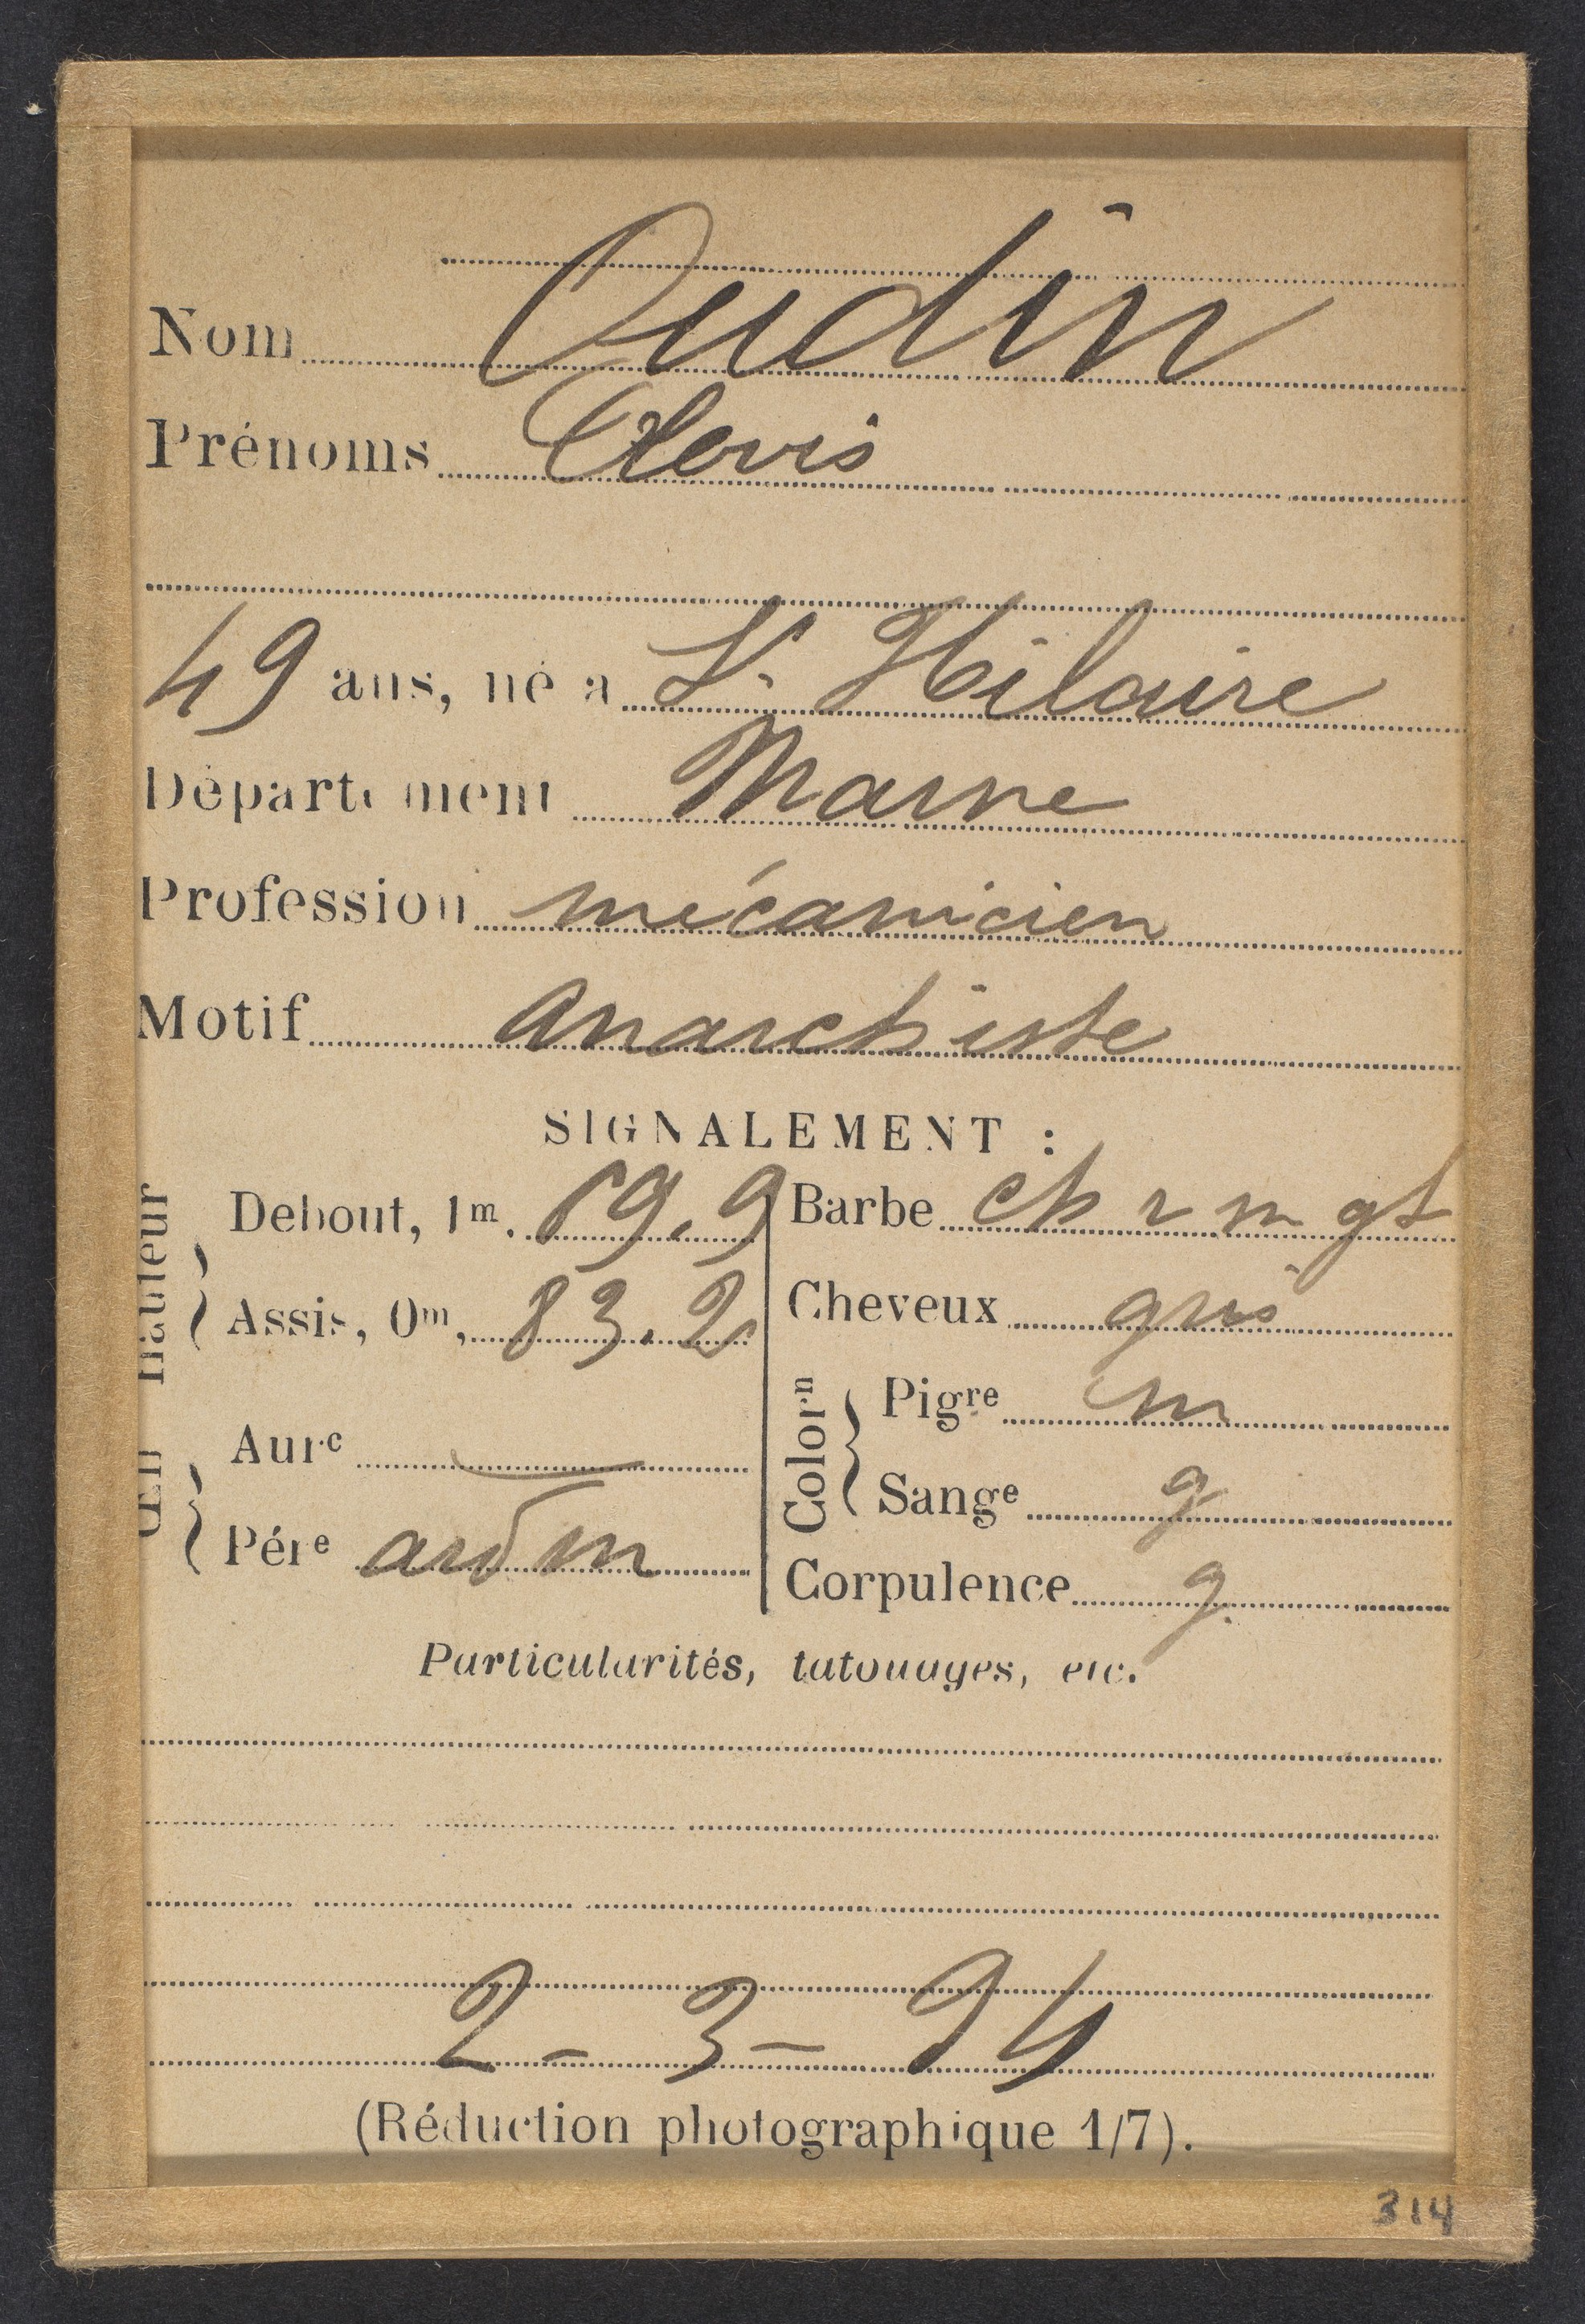 Nom Oudin
Prénoms Clovis
49 ans, né à St Hilaire
Département Marne
Profession mécanicien
Motif Anarchiste
SIGNALEMENT :
Hauteur
Debout, 1m. 69,9
Assis, 0m, 83.2
Œil
Aurc
Pére m
Barbe ch r m gt
Cheveux gris
Colorn
Pigre m
Sange g
Corpulence g.
Particularités, tatouages, etc.
2-3-94
(Réduction photographique 1/7).
314